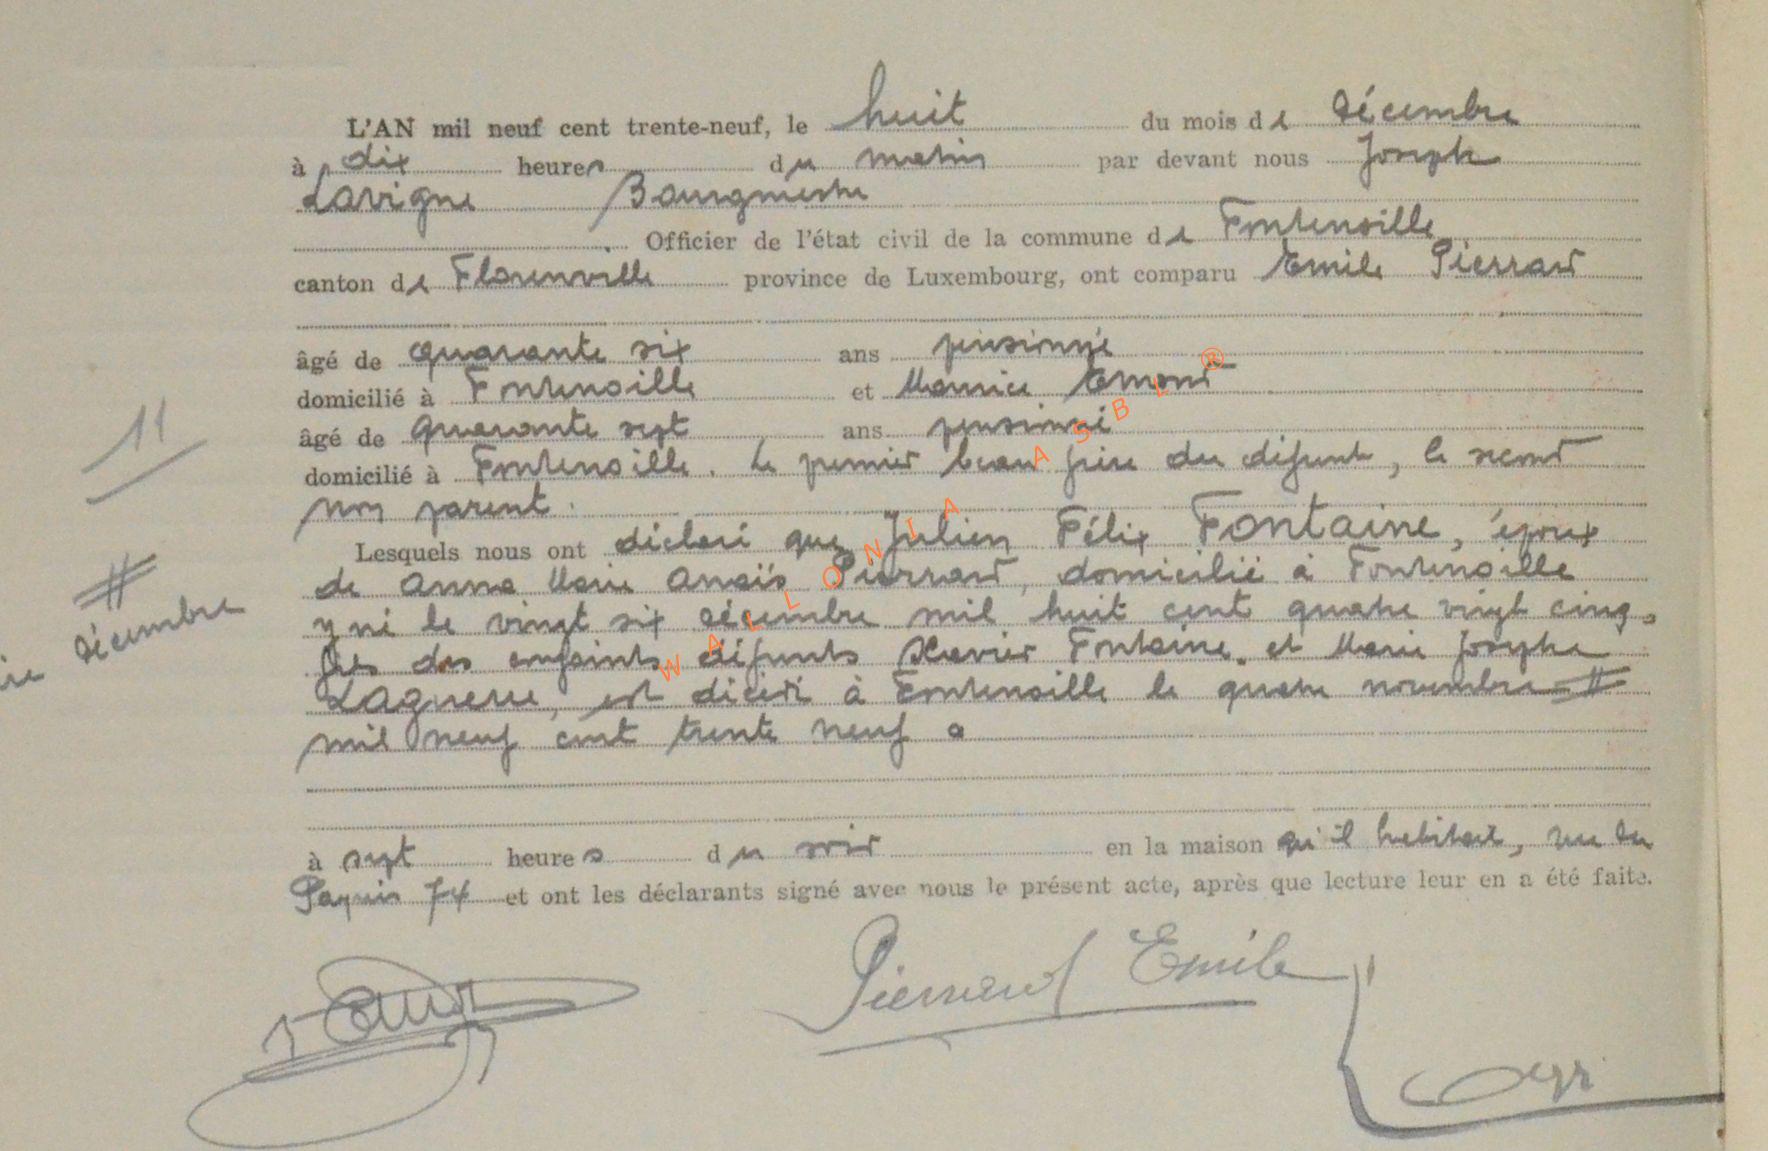 L'AN mil neuf cent trente-neuf, le huit du mois de Décembre
à dix heures du matin par devant nous Joseph
Lavigne Bourgmestre
Officier de l'état civil de la commune de Fontenoille
canton de Florenville province de Luxembourg, ont comparu Emile Pierrard
âgé de quarante six ans pensionné
domicilié à Fontenoille et Maurice Emond
âgé de quarante sept ans pensionné
domicilié à Fontenoille. Le premier beau frère du défunt, le second
non parent.
11
Lesquels nous ont déclaré que Julien Félix FONTAINE, époux
de Anna Marie Anaïs Pierrard, domicilié à Fontenoille
y né le vingt six décembre mil huit cent quatre vingt cinq,
fils des conjoints défunts Xavier Fontaine et Marie Josephe
Laguerre, est décédé à Fontenoille le quatre novembre #
mil neuf cent trente neuf a
# décembre
à sept heures du soir en la maison qu'il habitait, rue du
Paquis 74 et ont les déclarants signé avec nous le présent acte, après que lecture leur en a été faite.
Pierrard Emile
WALLONIA ASBL ®